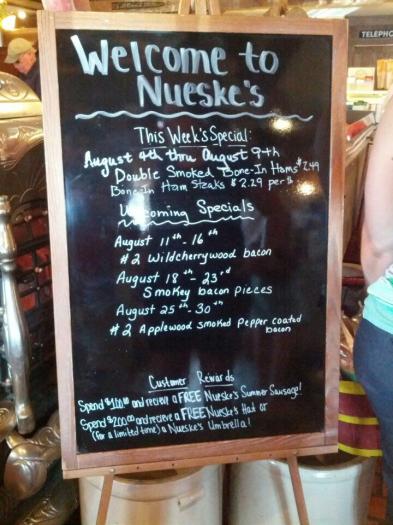 TELEPHO
Welcome to
Nueske's
This Week's Special:
August 4th thru August 9th
Double Smoked Bone-In Hams $2.49
Bone-In Ham Steaks $2.29 per lb
Upcoming Specials
August 11th - 16th
#2 Wildcherrywood bacon
August 18th - 23rd
Smokey bacon pieces
August 25th - 30th
#2 Applewood smoked Pepper coated
bacon
Customer Rewards
Spend $100.00 and recieve a FREE Nueske's Summer Sausage!
Spend $200.00 and recieve a FREE Nueske's Hat or
(for a limited time) a Nueske's Umbrella!